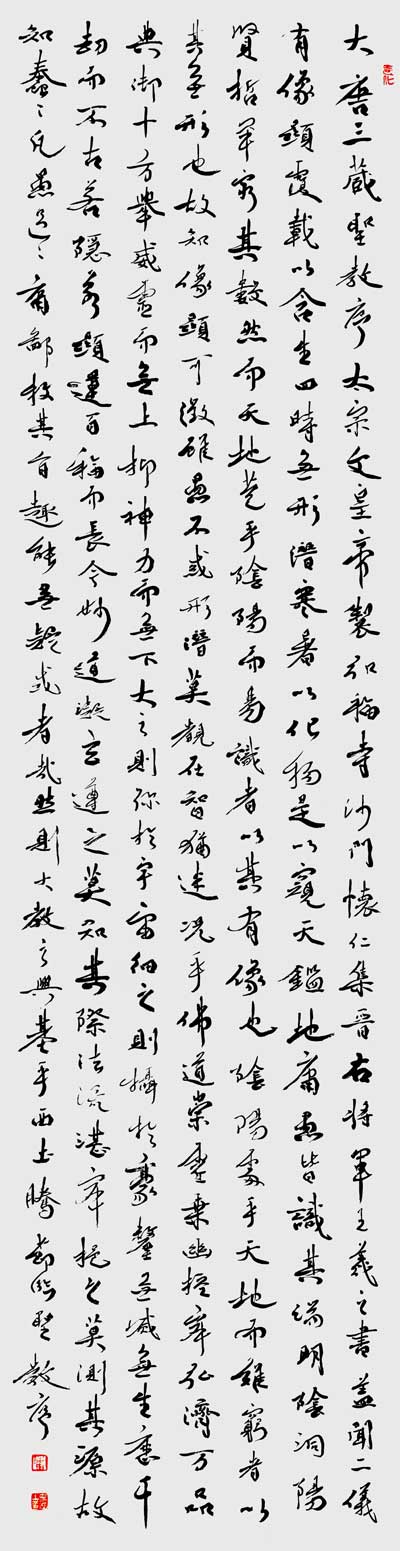 大唐三藏聖教序太宗文皇帝製弘福寺沙門懷仁集晉右將軍王羲之書蓋聞二儀
有像顯覆載以含生四時無形潛寒暑以化物是以窺天鑑地庸愚皆識其端明陰洞陽
賢哲罕窮其數然而天地苞乎陰陽而易識者以其有像也陰陽處乎天地而難窮者以
其無形也故知像顯可徵雖愚不惑形潛莫覩在智猶迷況乎佛道崇虛乘幽控寂弘濟万品
典御十方舉威靈而無上抑神力而無下大之則彌於宇宙細之則攝於豪釐無滅無生歷千
劫而不古若隱若顯運百福而長今妙道凝玄遵之莫知其際法流湛寂挹之莫測其源故
知蠢々凡愚區々庸鄙投其旨趣能無疑或者哉然則大教之興基乎西土騰節臨聖教序